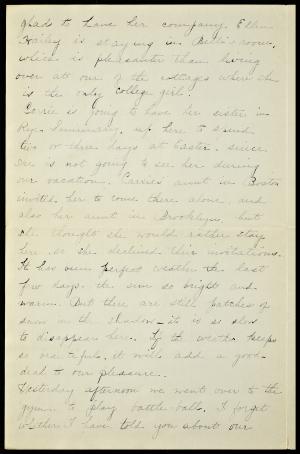 glad to have her company. Ellen
Hailey is staying in Bell's room,
which is pleasanter than living
over at one of the cottages where she
is the only college girl.
Corrie is going to have her sister in
Rye Seminary, up here to spend
two or three days at Easter, since
she is not going to see her during
our vacation. Carrie's aunt in Boston
invited her to come there alone, and
also her aunt in Brooklyn, but
she thought she would rather stay
here, so she declined their invitations.
It has been perfect weather the last
few days, the sun so bright and
warm. But there are still patches of
snow in the shadow – it is so slow
to disappear here. If the weather keeps
so beautiful, it will add a good
deal to our pleasure.
Yesterday afternoon we went over to the
gym. to play battle-ball. I forget
whether I have told you about our